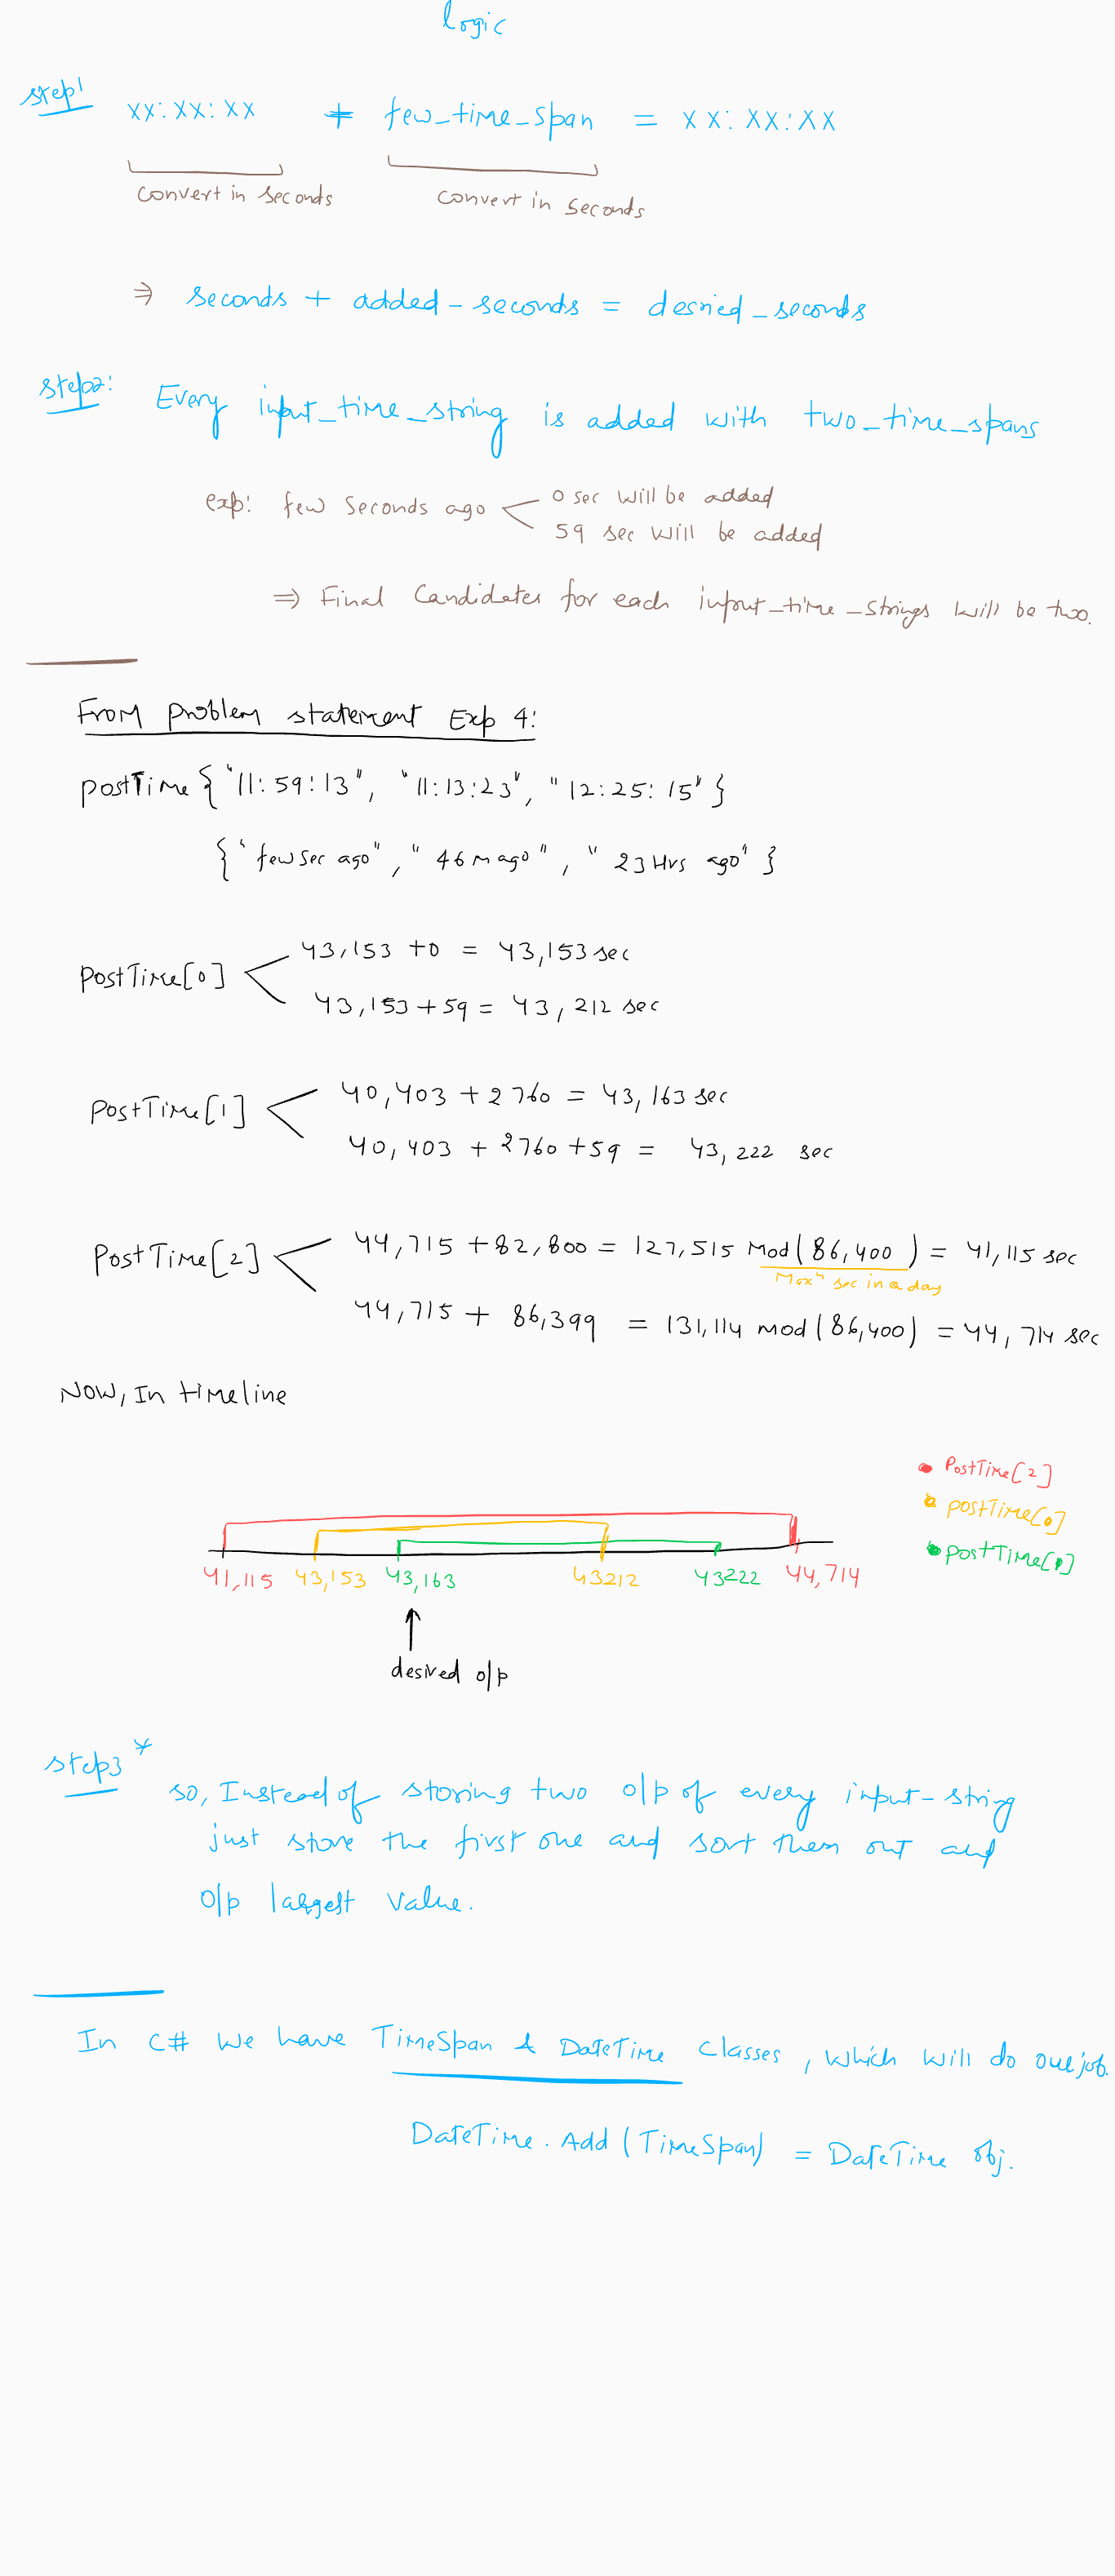 logic
step1
xx:xx:xx + few_time_span = xx:xx:xx
Convert in seconds
Convert in seconds
⇒ seconds + added-seconds = desried_seconds
step2: Every input_time_string is added with two_time_spans
exp: few seconds ago
0 sec will be added
59 sec will be added
⇒ Final Candidates for each input_time_strings will be two.
From problem statement Exp 4:
postTime {"11:59:13", "11:13:23", "12:25:15"}
{"few sec ago", "46 m ago", "23 Hrs ago"}
PostTime[0]
43,153 +0 = 43,153 sec
43,153+59 = 43,212 sec
PostTime[1]
40,403 + 2760 = 43,163 sec
40,403 + 2760 +59 = 43,222 sec
PostTime[2]
44,715 +82,800 = 127,515 Mod(86,400) = 41,115 sec
Maxm sec in a day
44,715 + 86,399 = 131,114 mod(86,400) = 44,714 sec
NOW, In timeline
PostTime[2]
postTime[0]
postTime[1]
41,115 43,153 43,163 43212 43222 44,714
desired o/p
step3 *
so, Instead of storing two o/p of every input-string
just store the first one and sort them out and
o/p largest value.
In C# We have TimeSpan & DateTime Classes, which will do our job.
DateTime.Add(TimeSpan) = DateTime obj.